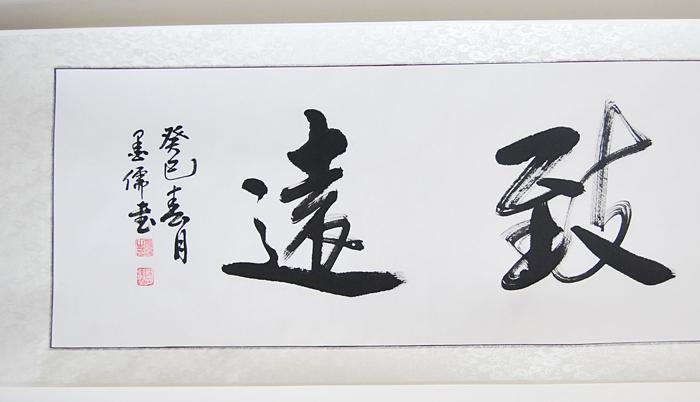 致遠
癸巳春月
墨儒书